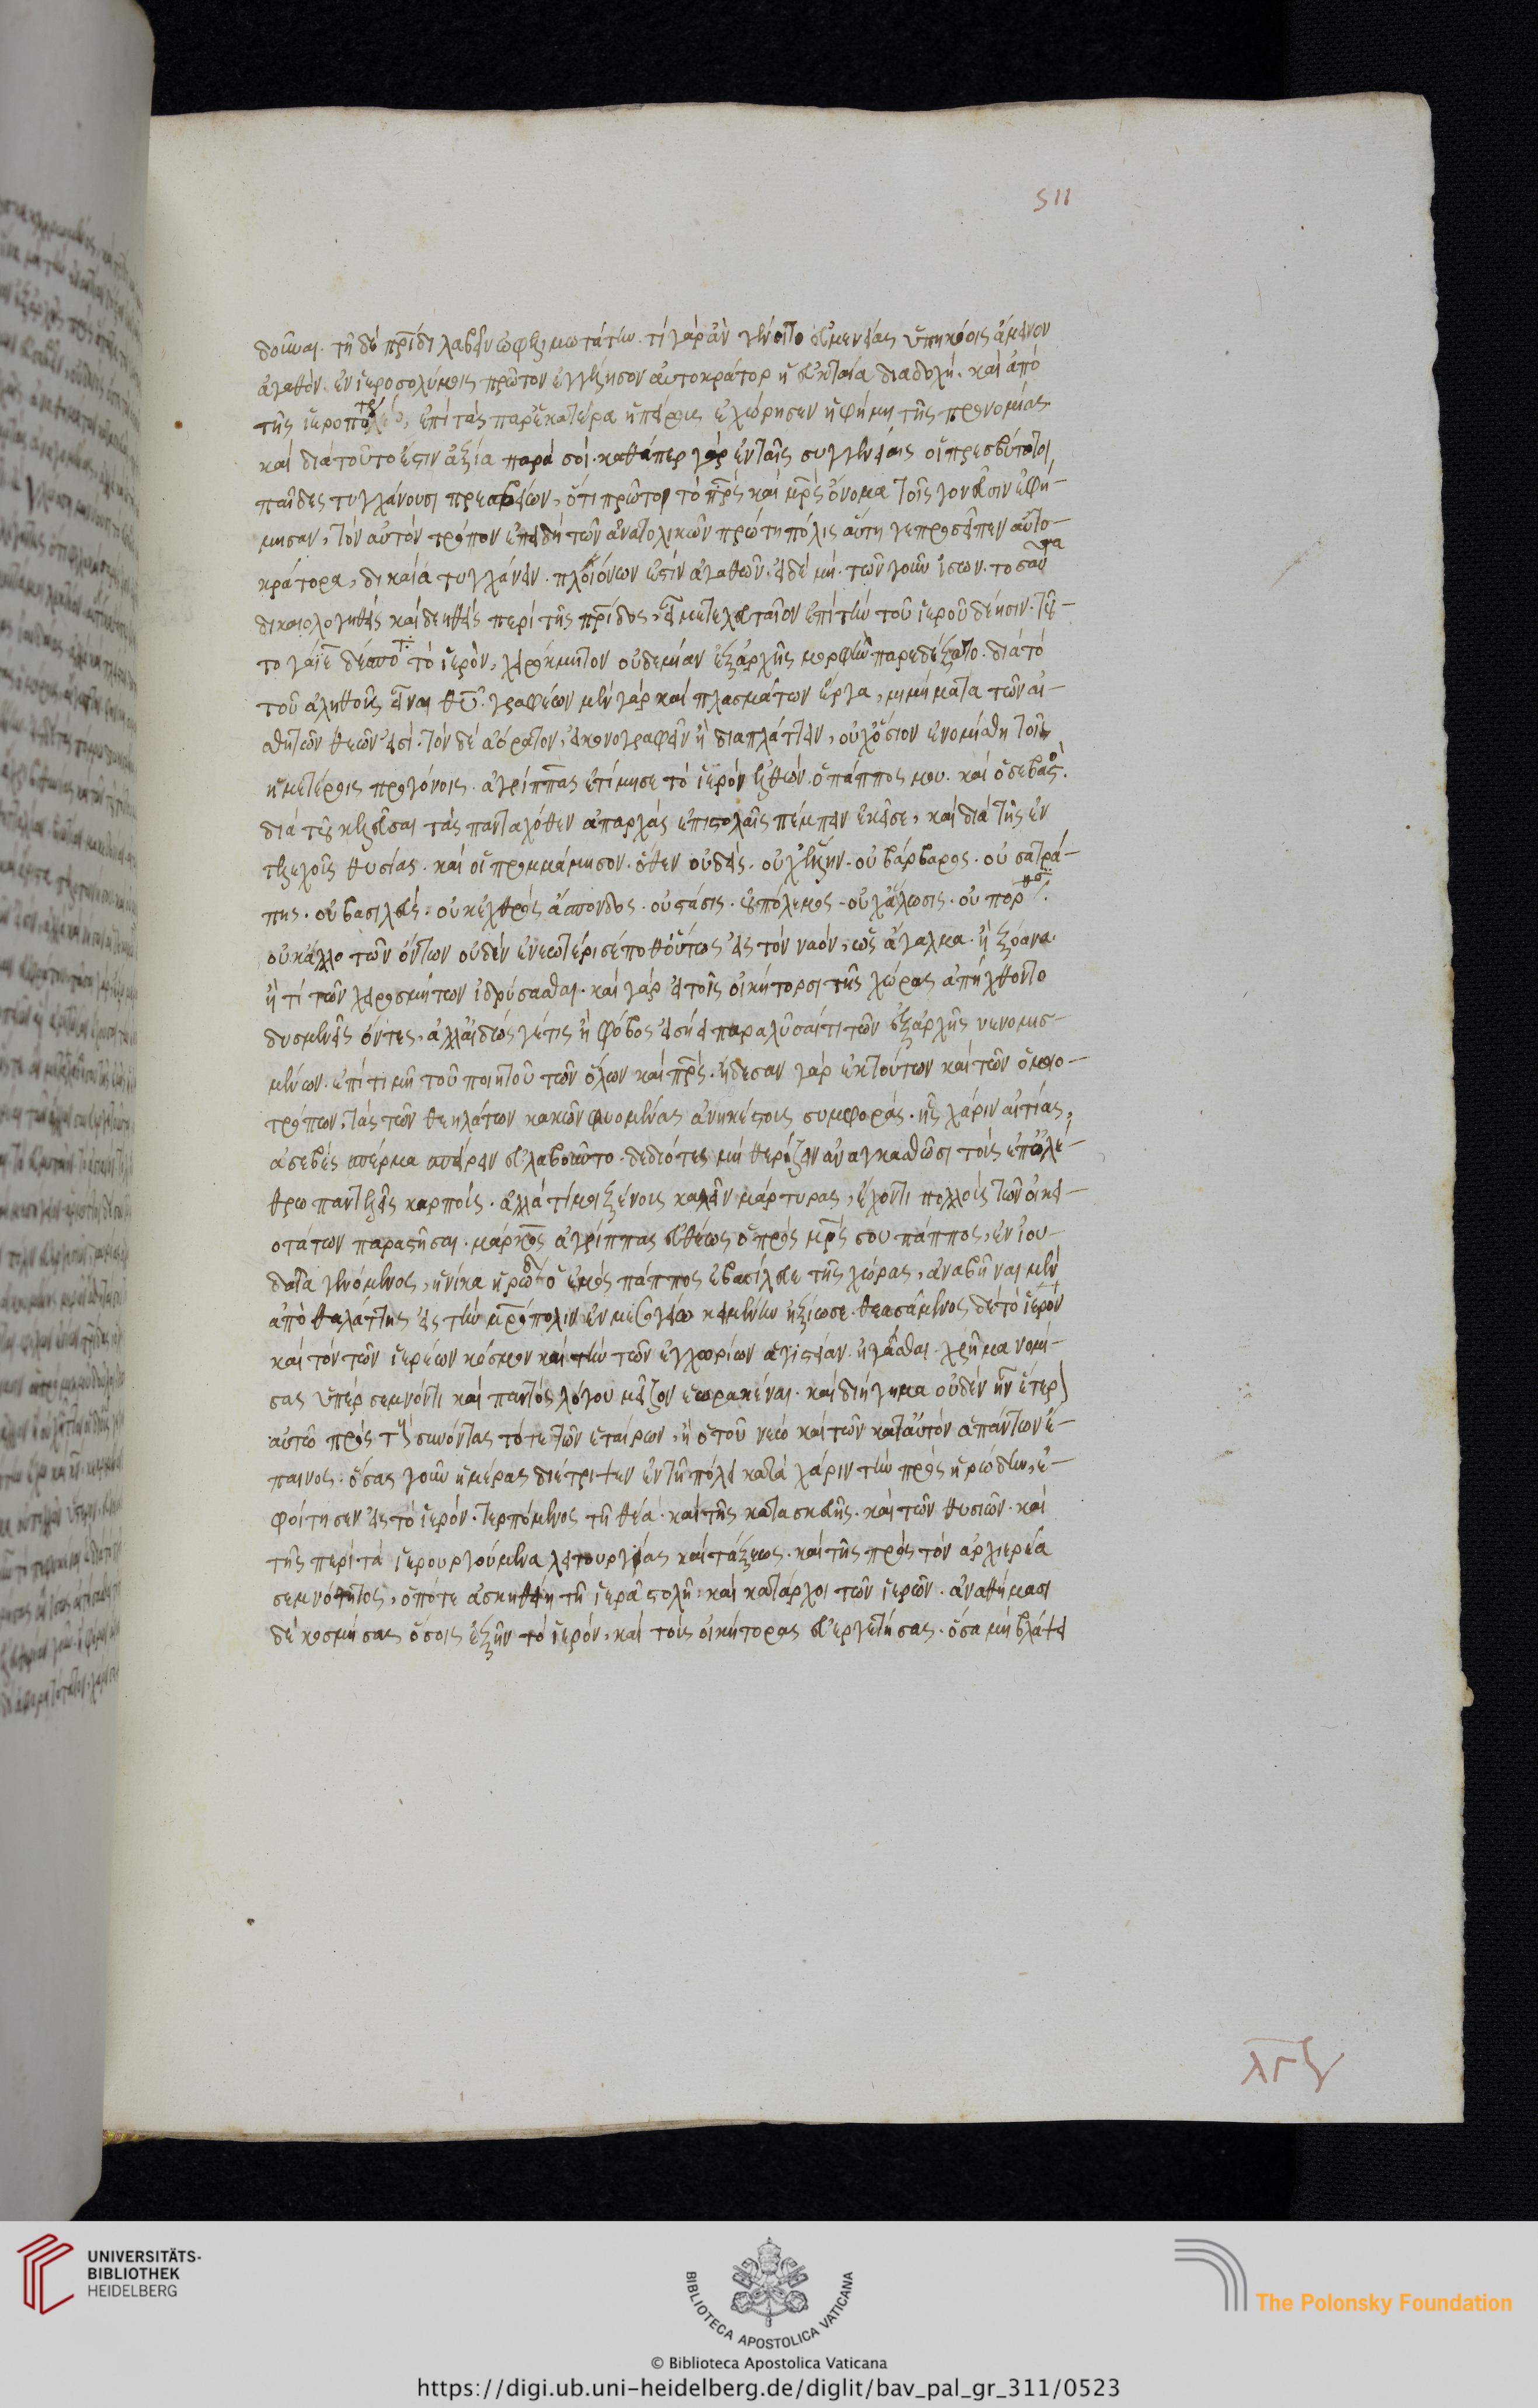 511
δοῦναι. τῇ δὲ πρ̅ίδι λαβεῖν ὠφελιμωτάτην. τί γὰρ ἂν γένοιτο εὐμενείας ὑπηκόοις ἄμεινον
ἀγαθόν. ἐν ἱεροσολύμοις πρῶτον αὐτοκράτορ ἡ εὐκταία διαδοχή. καὶ ἀπὸ
τῆς ἐπὶ τὰς παρ' ἑκάτερα ἠπείρους ἐχώρησεν ἡ φήμη τῆς προνομίας
καὶ διατοῦτο ἐστὶν ἀξία παρὰ σοί. καθάπερ γὰρ ἐν ταῖς συγγενείαις οἱ πρεσβύτατοι
παῖδες τυγχάνουσι πρεσβείων, ὅτι πρῶτοι τὸ πρ̅ς καὶ μρ̅ς ὄνομα τοῖς γονεῦσιν ἐφή-
μησαν, τὸν αὐτὸν τρόπον ἐπειδὴ τῶν ἀνατολικῶν πρώτη πόλις αὕτη γε προσεῖπεν αὐτο-
κράτορα, δικαία τυγχάνειν. πλειόνων ἐστὶν ἀγαθῶν. εἰ δὲ μή. τῶν γοῦν ἴσων. τοσαῦτα
δικαιολογηθεὶς καὶ δεηθεὶς περὶ τῆς πρ̅ίδος, εἶμι τελευταῖον ἐπὶ τὴν τοῦ ἱεροῦ δέησιν. τοῦ-
το γάϊε δέσποτα τὸ ἱερόν, χειρόκμητον οὐδεμίαν ἐξ ἀρχῆς μορφὴν παρεδέξατο. διὰ τὸ
τοῦ ἀληθοῦς εἶναι θυ̅. γραφέων μὲν γὰρ καὶ πλασμάτων ἔργα, μιμήματα τῶν αἰ-
σθητῶν θεῶν εἰσί. τὸν δὲ ἀόρατον, εἰκονογραφεῖν ἢ διαπλάττειν, οὐχ ὅσιον ἐνομίσθη τοῖς
ἡμετέροις προγόνοις. ἀγρίππας ἐτίμησε τὸ ἱερὸν ἐλθών. ὁ πάππος μου. καὶ ὁ σεβαστὸς
διὰ τοῦ κελεῦσαι τὰς πανταχόθεν ἀπαρχὰς ἐπιστολαῖς πέμπειν ἐκεῖσε, καὶ διὰ τῆς ἐν
τελεχοῖς θυσίας. καὶ οὐδεὶς. οὐχ ἕλλην. οὐ βάρβαρος. οὐ σατρά-
πης. οὐ βασιλεύς. οὐκ ἐχθρὸς ἄσπονδος. οὐ στάσις. οὐ πόλεμος. οὐχ ἅλωσις. οὐ πόρθησις.
οὐκ ἄλλο τῶν ὄντων οὐδὲν ἐνεωτέρισέ ποθ' οὕτως εἰς τὸν ναόν, ὡς ἄγαλμα. ἢ ξόανα.
ἤ τι τῶν χειροκμήτων ἱδρύσασθαι. καὶ γὰρ εἰ τοῖς οἰκήτορσι τῆς χώρας ἀπήχθοντο
δυσμενεῖς ὄντες, ἀλλ' αἰδώς γέ τις ἢ φόβος εἰσῄει παραλῦσαί τι τῶν ἐξ ἀρχῆς νενομισ-
μένων. ἐπὶ τιμῇ τοῦ ποιητοῦ τῶν ὅλων καὶ πρ̅ς. ᾔδεσαν γὰρ ἐκ τούτων καὶ τῶν ὁμοιο-
τρόπων, τὰς τῶν θεηλάτων κακῶν φυομένας ἀνηκέστους συμφοράς. ἧς χάριν αἰτίας,
ἀσεβὲς σπέρμα σπείρειν εὐλαβοῦντο. δεδιότες μὴ θερίζειν ἀναγκασθῶσι τοὺς ἐπ' ὀλέ-
θρῳ παντελεῖς καρπούς. ἀλλὰ τί μοι ξένους καλεῖν μάρτυρας, ἔχοντι πολλοὺς τῶν οἰκει-
οτάτων παραστῆσαι. μάρκος ἀγρίππας εὐθέως ὁ πρὸς μρ̅ς σου πάππος, ἐν ἰου-
δαία γενόμενος, ἡνίκα ἡρώδης ὁ ἐμὸς πάππος ἐβασίλευε τῆς χώρας, ἀναβῆναι μὲν
ἀπὸ θαλάττης εἰς τὴν μρ̅όπολιν ἐν μεσογείῳ κειμένην ἠξίωσε. θεασάμενος δὲ τὸ ἱερὸν
καὶ τὸν τῶν ἱερέων κόσμον καὶ τὴν τῶν ἐγχωρίων ἁγιστείαν. ἠγάσθαι. χρῆμα νομί-
σας ὑπέρσεμνόν τι καὶ παντὸς λόγου μεῖζον ἑωρακέναι. καὶ διήγημα οὐδὲν ἦν ἕτερον
αὐτῷ πρὸς τοὺς συνόντας τότε τῶν ἑταίρων, ἢ ὁ τοῦ νεὼ καὶ τῶν κατ' αὐτὸν ἁπάντων ἔ-
παινος. ὅσας γοῦν ἡμέρας διέτριψεν ἐν τῇ πόλει κατὰ χάριν τὴν πρὸς ἡρώδην, ἐ-
φοίτησεν εἰς τὸ ἱερόν. τερπόμενος τῇ θέα. καὶ τῆς κατασκευῆς. καὶ τῶν θυσιῶν. καὶ
τῆς περὶ τὰ ἱερουργούμενα λειτουργίας καὶ τάξεως. καὶ τῆς πρὸς τὸν ἀρχιερέα
σεμνότητος, ὁπότε ἀσκηθείη τῇ ἱερᾷ στολῇ. καὶ κατάρχοι τῶν ἱερῶν. ἀναθήμασι
δὲ κοσμήσας ὅσοις ἐξῆν τὸ ἱερόν, καὶ τοὺς οἰκήτορας εὐεργετήσας. ὅσα μὴ βλάψει
UNIVERSITÄTS-
BIBLIOTHEK
HEIDELBERG
BIBLIOTECA APOSTOLICA VATICANA
The Polonsky Foundation
© Biblioteca Apostolica Vaticana
https://digi.ub.uni-heidelberg.de/diglit/bav_pal_gr_311/0523